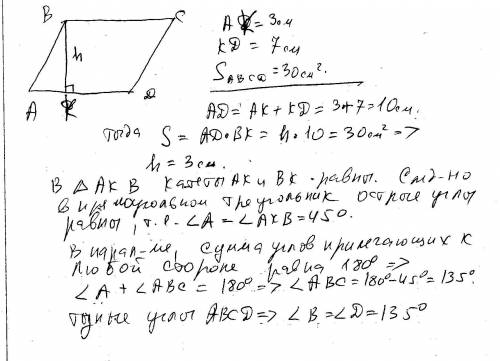 B C
A K D
h
AK = 3см
KD = 7см
S ABCD = 30см².
AD = AK + KD = 3+7 = 10см.
тогда S = AD·BK = h·10 = 30см² =>
h = 3см.
В △ AKB катеты AK и BK равны. След-но
в прямоугольном треугольник острые углы
равны, т.е. ∠A = ∠AKB = 450.
В парал-ме, сумма углов прилегающих к
любой стороне равна 180° =>
∠A + ∠ABC = 180° => ∠ABC = 180°-45° = 135°.
тупые углы ABCD => ∠B = ∠D = 135°